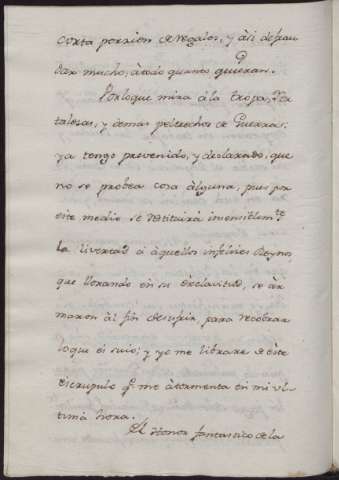 corta porzion de regalos, y àsi defrau
dar mucho, àtodo quanto quieran.
Porloque mira àla tropa,
talezas, y demas peltrechos de Guerras,
ya tengo prevenido, y declarado, que
no se probea cosa àlguna, pues por
este medio se restituirà insensiblemte.
la livertad à àquellos infelizes Reynos,
que llorando en su esclavitud, se àr
maron àl fin despues, para recobrar
loque es suio; y yo me librare de èste
escrupulo q. me àtormenta en mi ul
tima hora.
El Honor fantastico de la